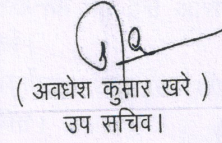 ( अवधेश कुमार खरे )
उप सचिव।